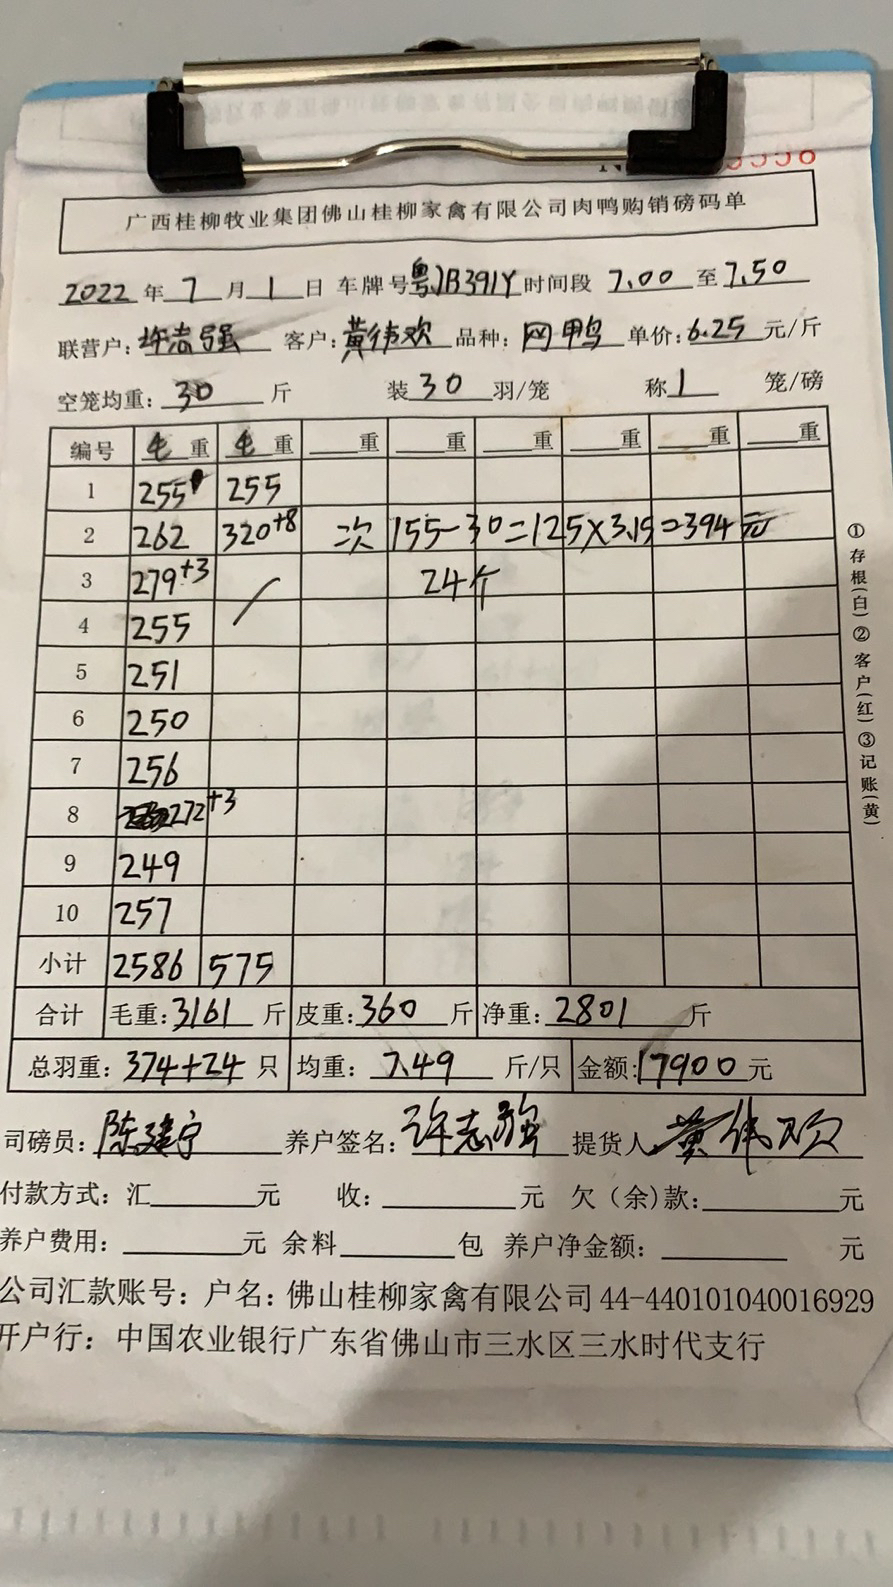 5556
广西桂柳牧业集团佛山桂柳家禽有限公司肉鸭购销磅码单
2022年7月1日 车牌号粤JB391Y时间段 7.00 至7.50
联营户:许志强 客户:黄伟欢 品种:网鸭 单价:6.25元/斤
空笼均重:30 斤 装30 羽/笼 称1 笼/磅
编号 毛重 毛重 重 重 重 重 重 重
1 255 255
2 262 320+8 次 155-30=125×3.15=394元
3 279+3 / 24个
4 255
5 251
6 250
7 256
8 272+3
9 249
10 257
小计 2586 575
合计 毛重:3161斤 皮重:360斤 净重:2801斤
总羽重:374+24只 均重:7.49 斤/只 金额:17900元
司磅员:陈建宁 养户签名:许志强 提货人黄伟欢
付款方式:汇 元 收: 元 欠(余)款: 元
养户费用: 元 余料 包 养户净金额: 元
公司汇款账号:户名:佛山桂柳家禽有限公司44-440101040016929
开户行:中国农业银行广东省佛山市三水区三水时代支行
①存根(白)②客户(红)③记账(黄)